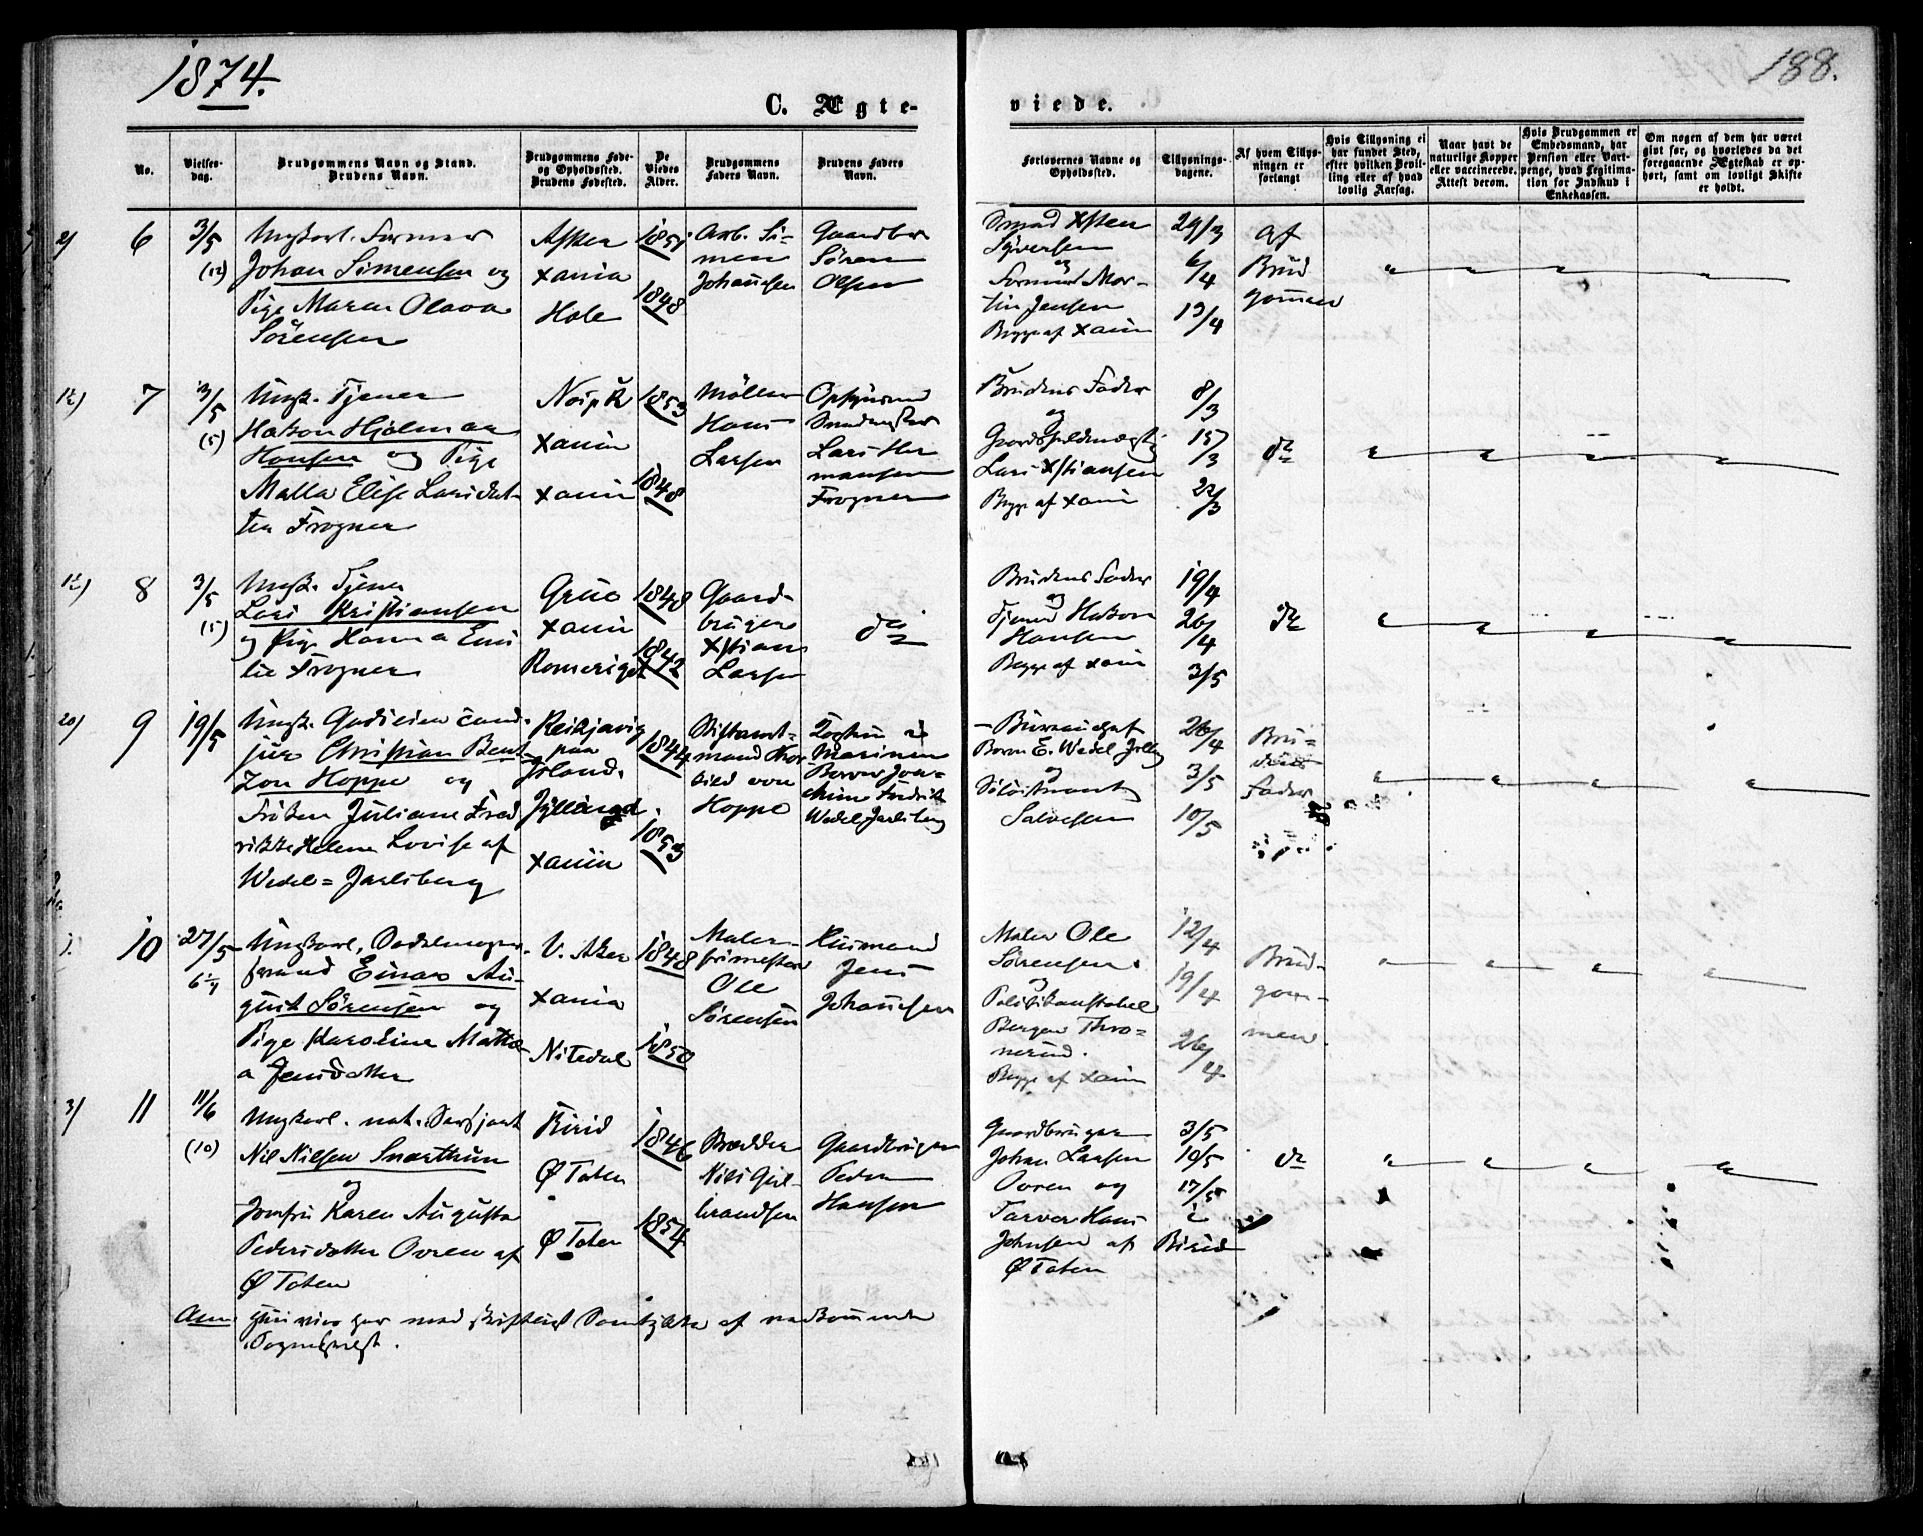 1874.
188.
C. Ægte-
viede.
No.
Vielses-
dag.
Brudgommens Navn og Stand.
Brudens Navn.
Brudgommens Føde-
og Opholdssted.
Brudens Fødested.
De
Viedes
Alder.
Brudgommens
Faders Navn.
Brudens Faders
Navn.
Forlovernes Navne og
Opholdssted.
Tillysnings-
dagene.
Af hvem Tillys-
ningen er
forlangt
Hvis Tillysning ei
har fundet Sted,
efter hvilken Bevil-
ling eller af hvad
lovlig Aarsag.
Naar havt de
naturlige Kopper
eller vaccinerede.
Attest derom.
Hvis Brudgommen er
Embedsmand, har
Pension eller Vart-
penge, hvad Legitima-
tion for Indskud i
Enkekassen.
Om nogen af dem har været
givt før, og hvorledes da det
foregaaende Ægteskab er op-
hørt, samt om lovligt Skifte
er holdt.
2)
6
3/5
(12)
Ungkarl. Former
Johan Simensen og
Pige Maren Olava
Sörensen
Asker
Xania
Hole
1851
1848
Arb. Si-
men
Johansen
Gaardbr
Sören
Olsen
Smed Xsten
Syversen
og
Former Mar-
tin Jensen
Begge af Xania
29/3
6/4
13/4
af
Brud
gommen
12)
7
3/5
(5)
Ungk. Tjener
Hakon Hjalmar
Hansen og Pige
Malla Elise Larsdat-
ter Frogner
Xania
Xania
1853
1848
Möller
Hans
Larsen
Opsynsmd
Lars Her
mansen
Frogner
Brudens Fader
og
Gaardsfuldmægtig
Lars Xstiansen
Begge af Xania
8/3
15/3
22/3
do
12)
8
3/5
(5)
Ungk. Tjener
Lars Kristiansen
og Pige Hanna Emi
lie Frogner
Grue
Xania
Romeriget
1848
1842
Gaard-
bruger
Xstian
Larsen
do
Brudens Fader
og
Tjener Hakon
Hansen
Begge af Xania
19/4
26/4
3/5
do
20)
9
19/5
Ungk. Godseier cand.
jur Christian Bent
zon Hoppe og
Fröken Juliane Fred
rikke Helene Lovise af
Wedel=Jarlsberg
Reikjavig
paa
Island.
Jylland.
Xania
1844
1853
Stiftamt-
mand Thor
kied von
Hoppe
Marinen
Baron Joa-
chim Fredrik
Wedel Jarlsberg
Bureauchef
Baron E. Wedel Jrlbg
og
Salvesen
26/4
3/5
10/5
Bru-
dens
Fader
10
27/5
Ungkarl, Sadelmager
svend Einar Au-
gust Sörensen og
Pige Karoline Mathe
a Jensdatter
V. Aker
Xania
Nitedal
1848
1850
Maler-
Ole
Sörensen
Husmand
Jens
Johansen
Maler Ole
Sörensen
og
Politikonstabel
Bergen Thro-
nerud.
Begge af Xania
12/4
19/4
26/4
Brud-
gom-
men.
3)
11
11/6
(10)
Ungkarl. nat. Sersjant
Nil Nilsen Snarthum
og
Jomfru Karen Augusta
Pedersdatter Ovren af
Ø Toten
Birid
Ø Toten
Ø Toten
1846
1854
Snedker
Nils Gul-
brandsen
Gaardbruger
Peder
Hansen
Gaardbruger
Johan Larsen
Ovren og
Farver Hans
Johnsen af
Ø Toten
3/5
10/5
17/5
i
Birid
do
Anm. med skriftligt Samtykke af vedkommende
Sogneprest.